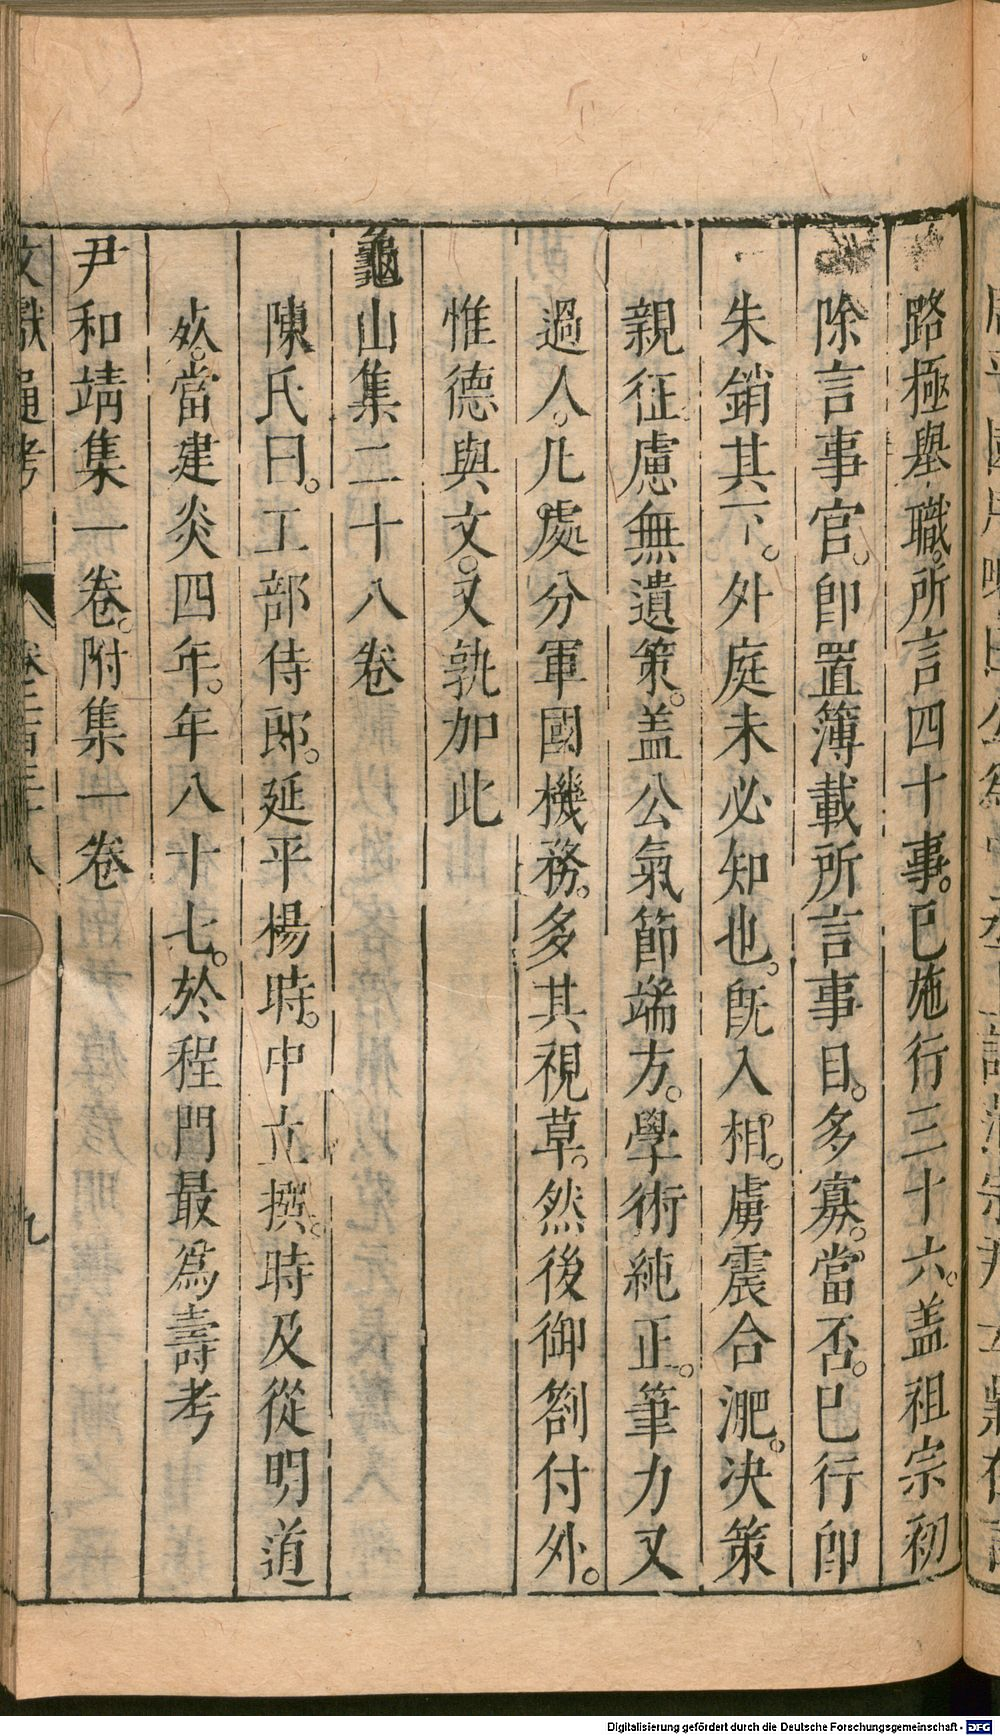 路極舉職。所言四十事。已施行三十六。盖祖宗初
除言事官。卽置簿載所言事目。多寡。當否。已行卽
朱銷其下。外庭未必知也。旣入相。虜震合淝。决策
親征慮無遺策。盖公氣節端方。學術純正。筆力又
過人。凡處分軍國機務。多其視草。然後御劄付外。
惟德與文。又孰加此
龜山集二十八卷
陳氏曰。工部侍郎。延平楊時。中立撰。時及從明道
㳺。當建炎四年。年八十七。於程門最爲壽考
尹和靖集一卷。附集一卷
文獻通考 卷二百三十八 九
Digitalisierung gefördert durch die Deutsche Forschungsgemeinschaft - DFG